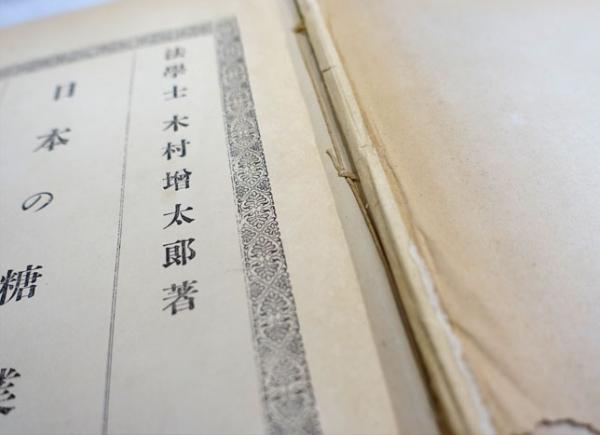 法學士 木村增太郎著
日本の糖業